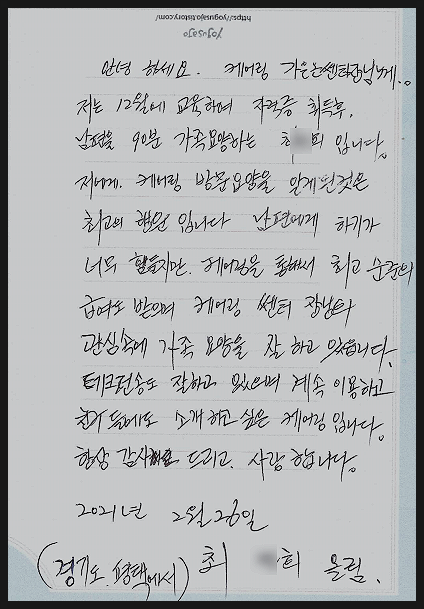 https://yogusajo.tistory.com/
yogusajo
안녕 하세요. 케어링 가은논쎈타장님께.
저는 12월에 교육하여 자격증 취득후,
남편을 90분 가족요양하는 최 희 입니다.
저에게. 케어링 방문요양을 알게된것은
최고의 행운 입니다 남편에게 하기가
너무 힘들지만. 케어링을 통해서 최고 수준의
급여도 받으며 케어링 쎈터 장님의
관심속에 가족 요양을 잘 하고 있습니다.
테크전송도 잘하고 있으며 계속 이용하고
친구 들에도 소개하고 싶은 케어링 입니다.
항상 감사 드리고. 사랑 합니다.
2021년 2월 26일
(경기도. 평택에서) 최 희 올림.